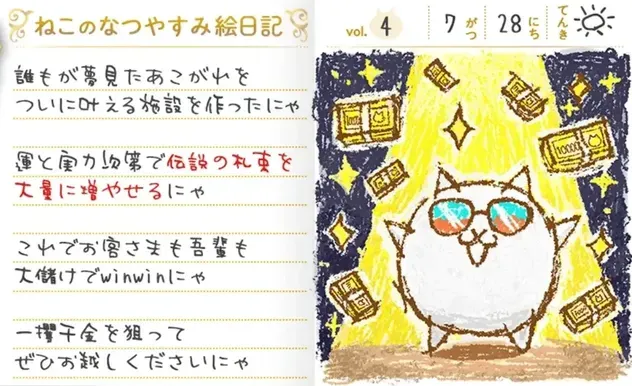 ねこのなつやすみ絵日記
誰もが夢見たあこがれを
ついに叶える施設を作ったにゃ
運と実力次第で伝説の札束を
大量に増やせるにゃ
これでお客さまも吾輩も
大儲けでwinwinにゃ
一攫千金を狙って
ぜひお越しくださいにゃ
vol. 4 7がつ 28にち てんき
10000